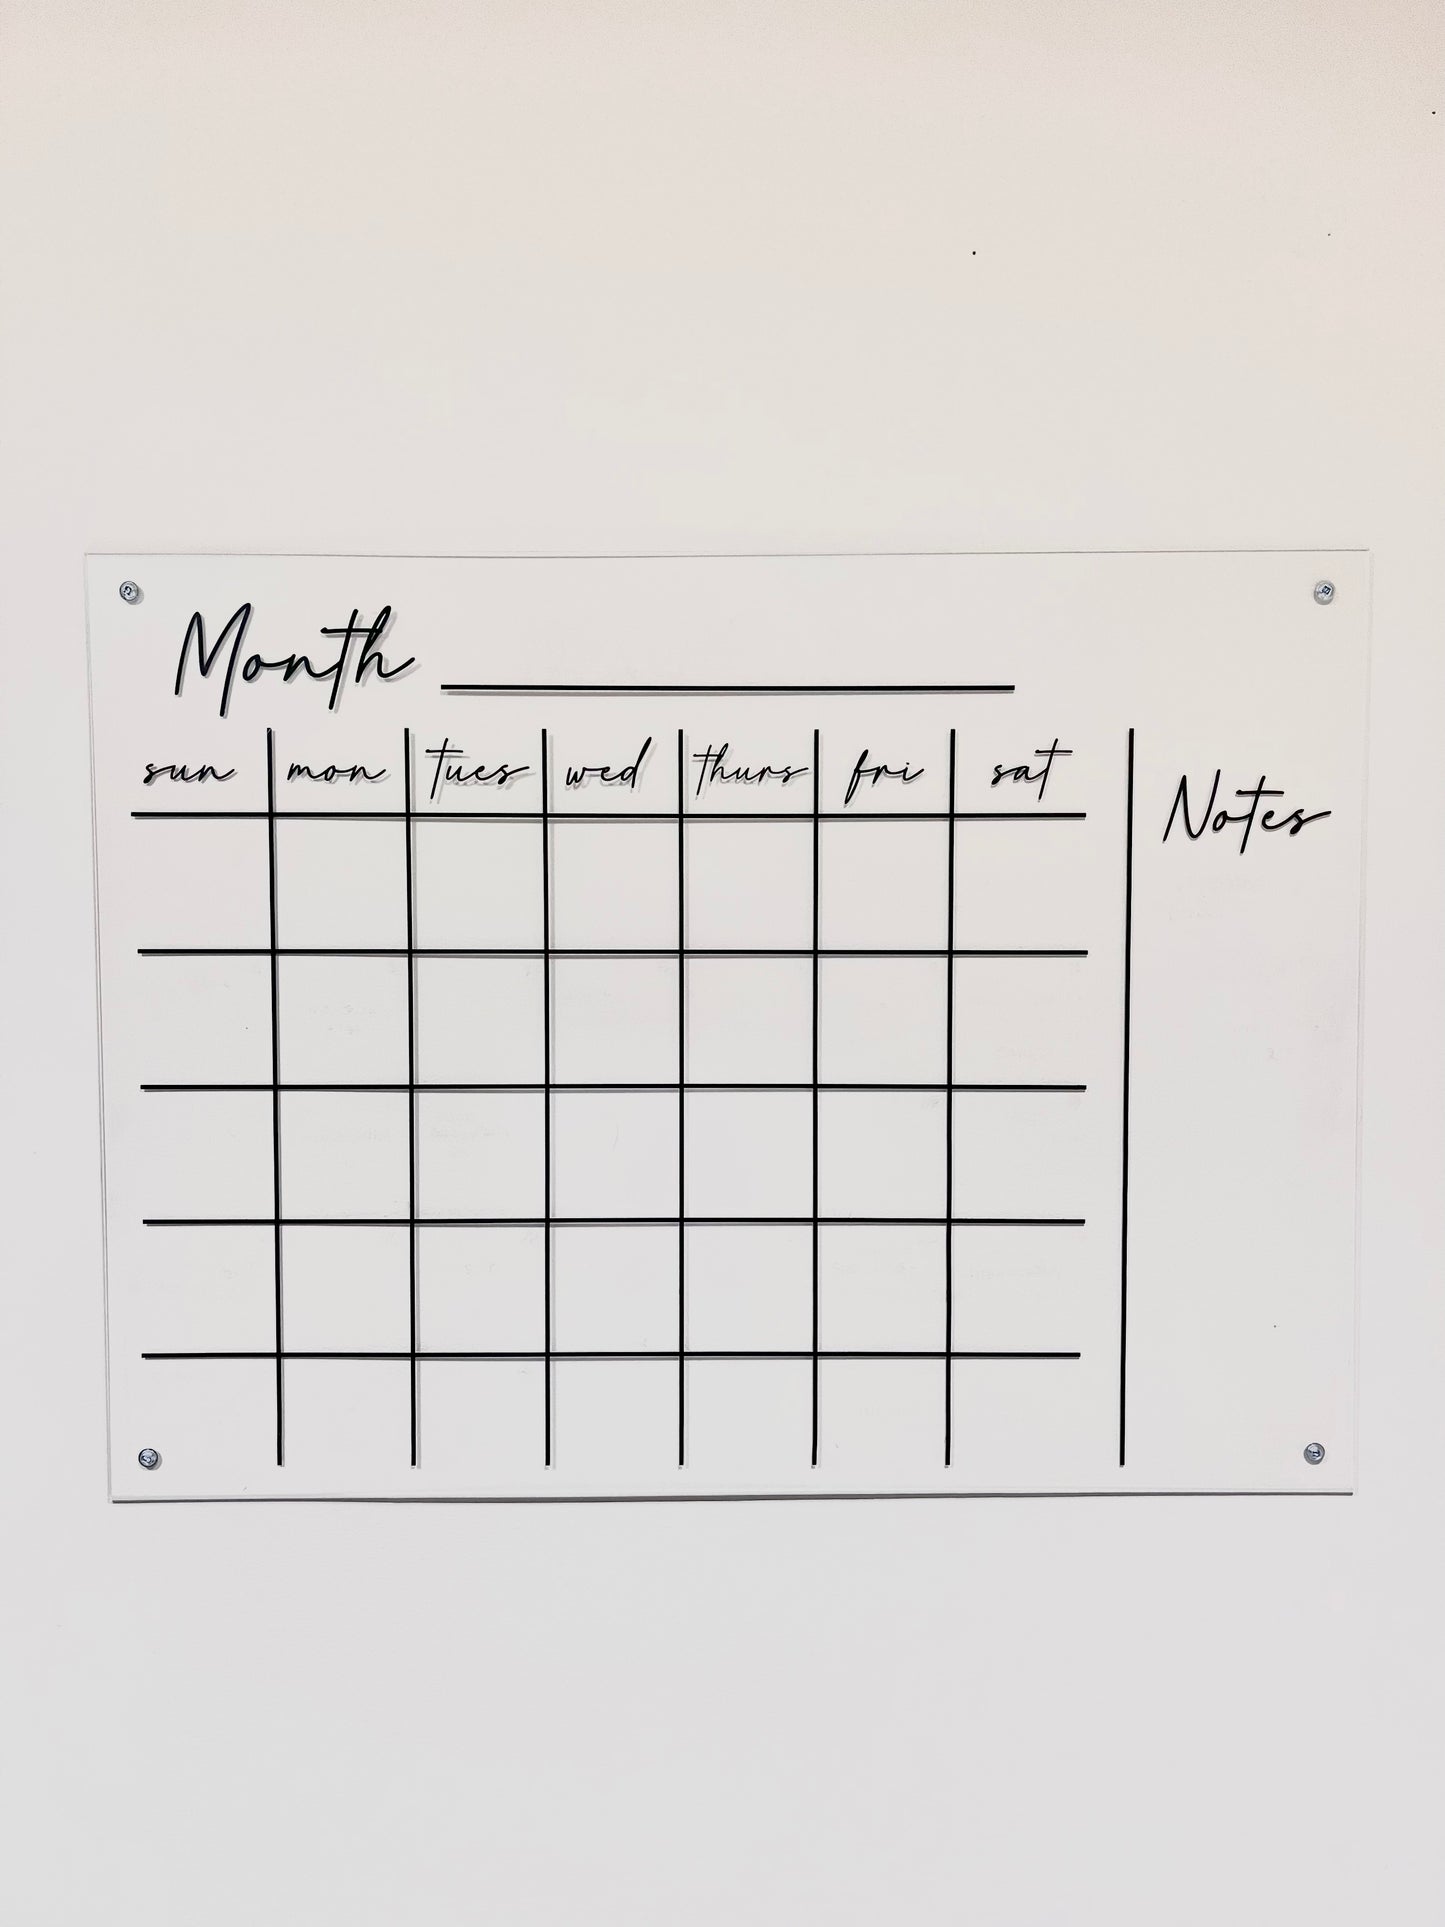 Month
sun mon tues wed thurs fri sat
Notes